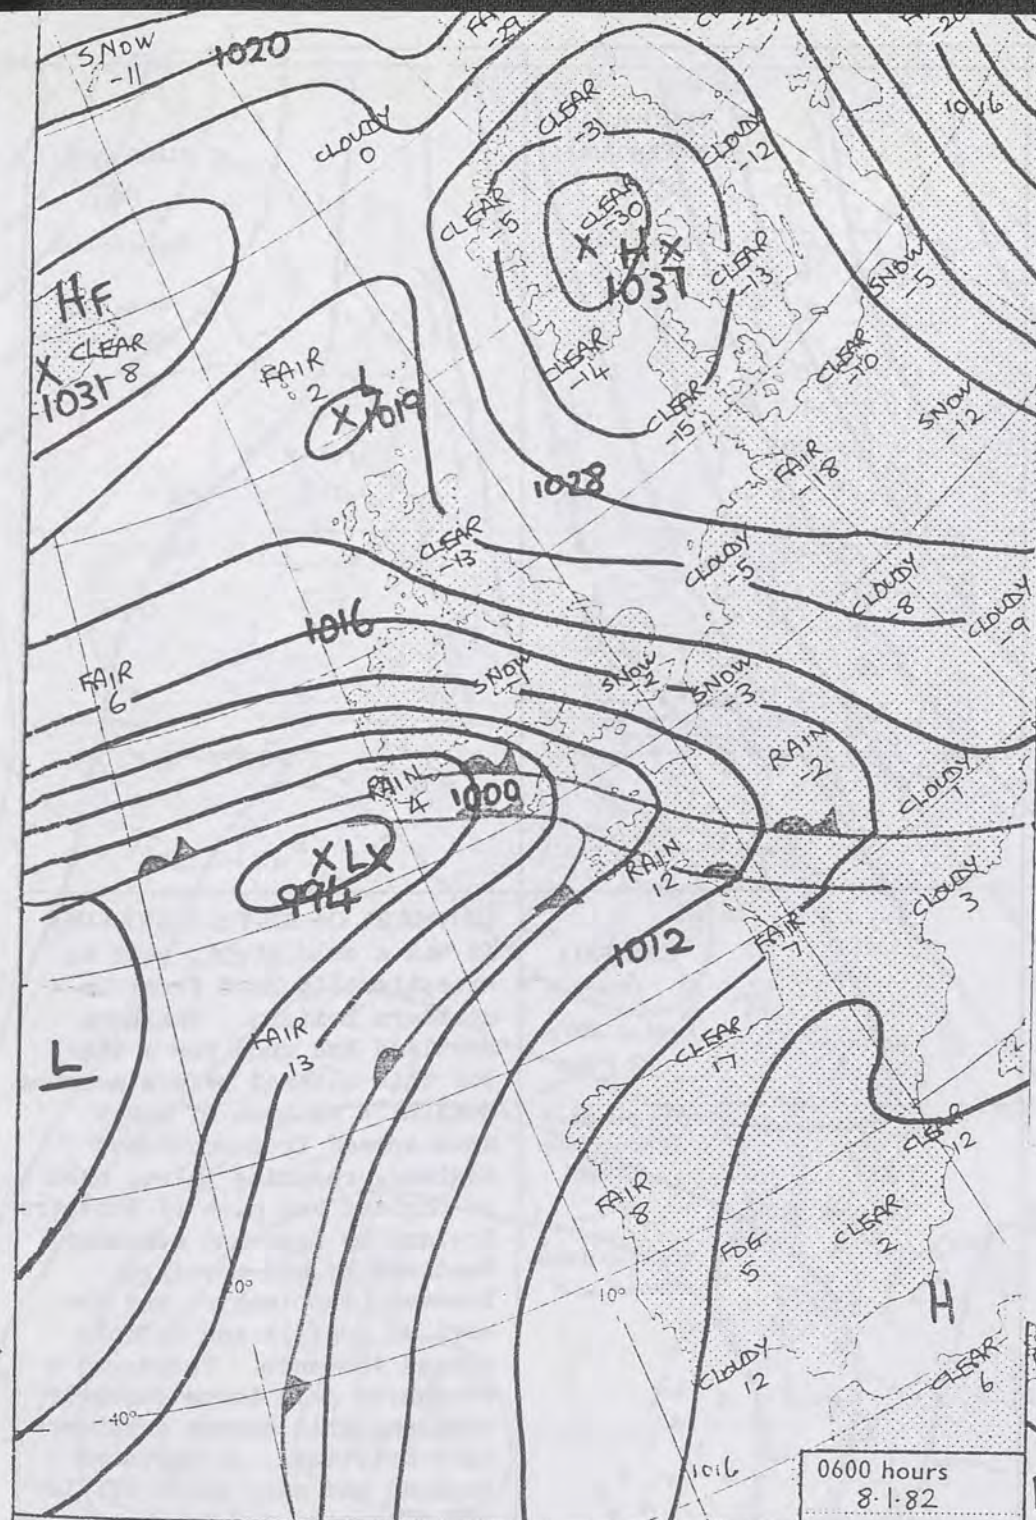 SNOW
-11
1020
FAIR
-29
CLOUDY
0
CLEAR
-31
CLOUDY
-12
1016
CLEAR
-5
CLEAR
-30
X H X
1037
CLEAR
-13
SNOW
-5
HF
X CLEAR
-8
1031
FAIR
2
L
X 1019
CLEAR
-14
CLEAR
-15
CLEAR
-10
SNOW
-12
FAIR
-18
1028
CLEAR
-13
CLOUDY
-5
CLOUDY
-8
CLOUDY
-9
1016
FAIR
6
SNOW
-1
SNOW
-2
SNOW
-3
RAIN
-2
CLOUDY
1
RAIN
4
1000
X L X
994
RAIN
12
CLOUDY
3
1012
FAIR
7
L
FAIR
13
CLEAR
17
L
CLEAR
12
FAIR
8
FOG
5
CLEAR
2
20°
10°
H
CLOUDY
12
CLEAR
6
-40°
1016
0600 hours
8.1.82